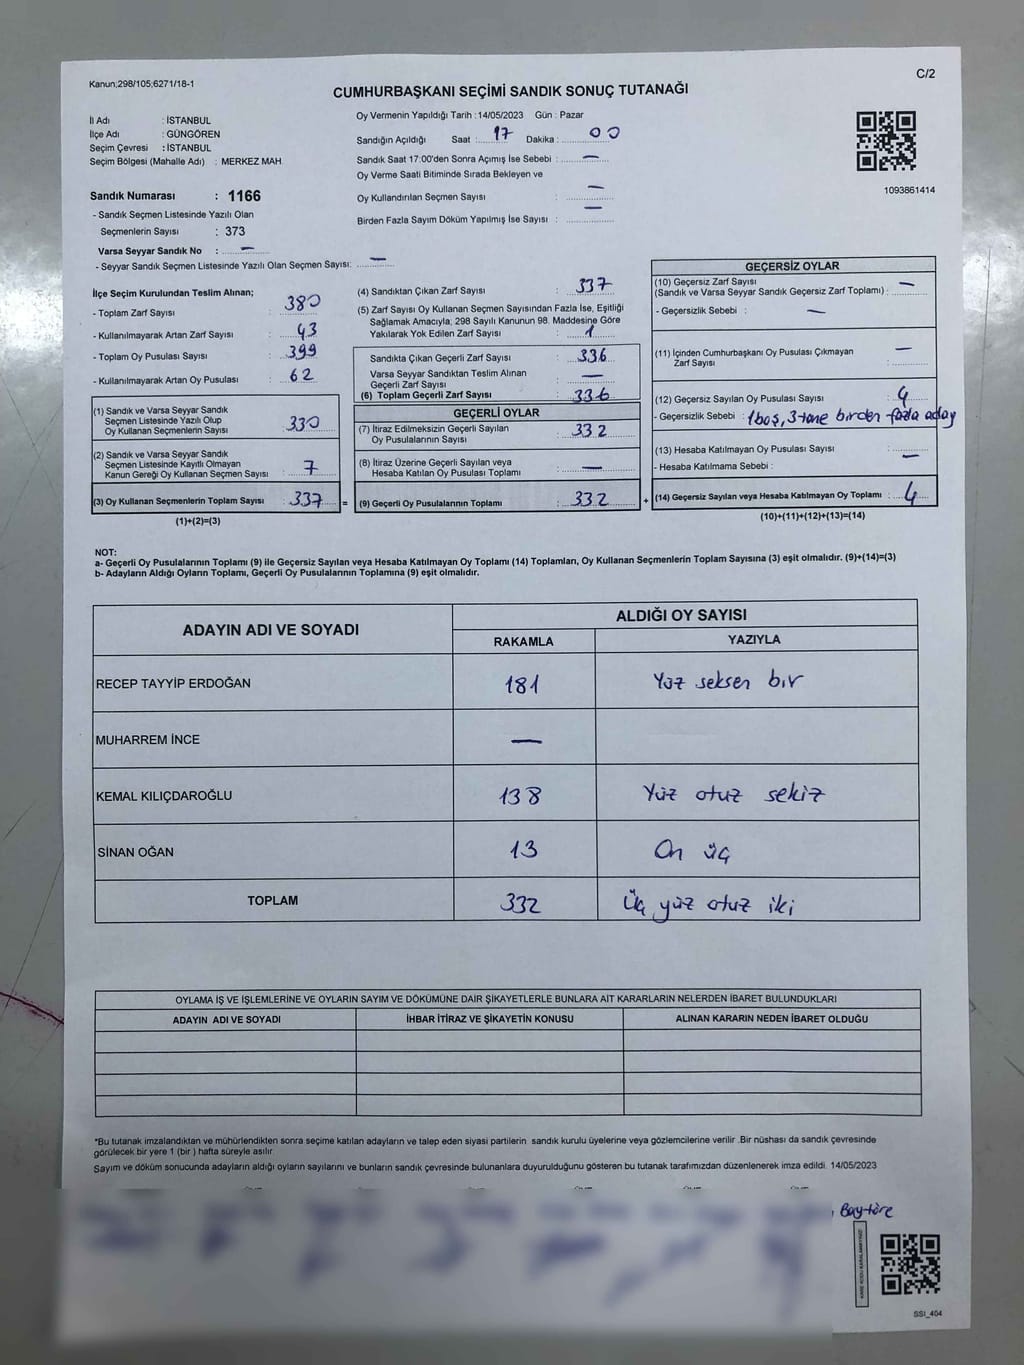 Kanun;298/105;6271/18-1
C/2
CUMHURBAŞKANI SEÇİMİ SANDIK SONUÇ TUTANAĞI
İl Adı : İSTANBUL
İlçe Adı : GÜNGÖREN
Seçim Çevresi : İSTANBUL
Seçim Bölgesi (Mahalle Adı) : MERKEZ MAH.
Sandık Numarası : 1166
- Sandık Seçmen Listesinde Yazılı Olan
Seçmenlerin Sayısı : 373
Varsa Seyyar Sandık No : —
- Seyyar Sandık Seçmen Listesinde Yazılı Olan Seçmen Sayısı: —
Oy Vermenin Yapıldığı Tarih : 14/05/2023 Gün : Pazar
Sandığın Açıldığı Saat : 17 Dakika : 00
Sandık Saat 17:00'den Sonra Açımış İse Sebebi : —
Oy Verme Saati Bitiminde Sırada Bekleyen ve
Oy Kullandırılan Seçmen Sayısı : —
Birden Fazla Sayım Döküm Yapılmış İse Sayısı : —
1093861414
İlçe Seçim Kurulundan Teslim Alınan;
- Toplam Zarf Sayısı : 380
- Kullanılmayarak Artan Zarf Sayısı : 43
- Toplam Oy Pusulası Sayısı : 399
- Kullanılmayarak Artan Oy Pusulası : 62
(1) Sandık ve Varsa Seyyar Sandık
Seçmen Listesinde Yazılı Olup
Oy Kullanan Seçmenlerin Sayısı : 330
(2) Sandık ve Varsa Seyyar Sandık
Seçmen Listesinde Kayıtlı Olmayan
Kanun Gereği Oy Kullanan Seçmen Sayısı : 7
(3) Oy Kullanan Seçmenlerin Toplam Sayısı : 337 =
(1)+(2)=(3)
(4) Sandıktan Çıkan Zarf Sayısı : 337
(5) Zarf Sayısı Oy Kullanan Seçmen Sayısından Fazla İse, Eşitliği
Sağlamak Amacıyla; 298 Sayılı Kanunun 98. Maddesine Göre
Yakılarak Yok Edilen Zarf Sayısı : 1
Sandıkta Çıkan Geçerli Zarf Sayısı : 336
Varsa Seyyar Sandıktan Teslim Alınan
Geçerli Zarf Sayısı : —
(6) Toplam Geçerli Zarf Sayısı : 336
GEÇERLİ OYLAR
(7) İtiraz Edilmeksizin Geçerli Sayılan
Oy Pusulalarının Sayısı : 332
(8) İtiraz Üzerine Geçerli Sayılan veya
Hesaba Katılan Oy Pusulası Toplamı : —
(9) Geçerli Oy Pusulalarının Toplamı : 332 +
GEÇERSİZ OYLAR
(10) Geçersiz Zarf Sayısı
(Sandık ve Varsa Seyyar Sandık Geçersiz Zarf Toplamı) : —
- Geçersizlik Sebebi : —
(11) İçinden Cumhurbaşkanı Oy Pusulası Çıkmayan
Zarf Sayısı : —
(12) Geçersiz Sayılan Oy Pusulası Sayısı : 4
- Geçersizlik Sebebi : 1 boş, 3 tane birden fazla aday
(13) Hesaba Katılmayan Oy Pusulası Sayısı : —
- Hesaba Katılmama Sebebi :
(14) Geçersiz Sayılan veya Hesaba Katılmayan Oy Toplamı : 4
(10)+(11)+(12)+(13)=(14)
NOT:
a- Geçerli Oy Pusulalarının Toplamı (9) ile Geçersiz Sayılan veya Hesaba Katılmayan Oy Toplamı (14) Toplamları, Oy Kullanan Seçmenlerin Toplam Sayısına (3) eşit olmalıdır. (9)+(14)=(3)
b- Adayların Aldığı Oyların Toplamı, Geçerli Oy Pusulalarının Toplamına (9) eşit olmalıdır.
ADAYIN ADI VE SOYADI
ALDIĞI OY SAYISI
RAKAMLA YAZIYLA
RECEP TAYYİP ERDOĞAN 181 Yüz seksen bir
MUHARREM İNCE —
KEMAL KILIÇDAROĞLU 138 Yüz otuz sekiz
SİNAN OĞAN 13 On üç
TOPLAM 332 Üç yüz otuz iki
OYLAMA İŞ VE İŞLEMLERİNE VE OYLARIN SAYIM VE DÖKÜMÜNE DAİR ŞİKAYETLERLE BUNLARA AİT KARARLARIN NELERDEN İBARET BULUNDUKLARI
ADAYIN ADI VE SOYADI İHBAR İTİRAZ VE ŞİKAYETİN KONUSU ALINAN KARARIN NEDEN İBARET OLDUĞU
*Bu tutanak imzalandıktan ve mühürlendikten sonra seçime katılan adayların ve talep eden siyasi partilerin sandık kurulu üyelerine veya gözlemcilerine verilir .Bir nüshası da sandık çevresinde
görülecek bir yere 1 (bir ) hafta süreyle asılır.
Sayım ve döküm sonucunda adayların aldığı oyların sayılarını ve bunların sandık çevresinde bulunanlara duyurulduğunu gösteren bu tutanak tarafımızdan düzenlenerek imza edildi. 14/05/2023
Baytöre
KARE KODU KARALAMAYINIZ!
SSI_404